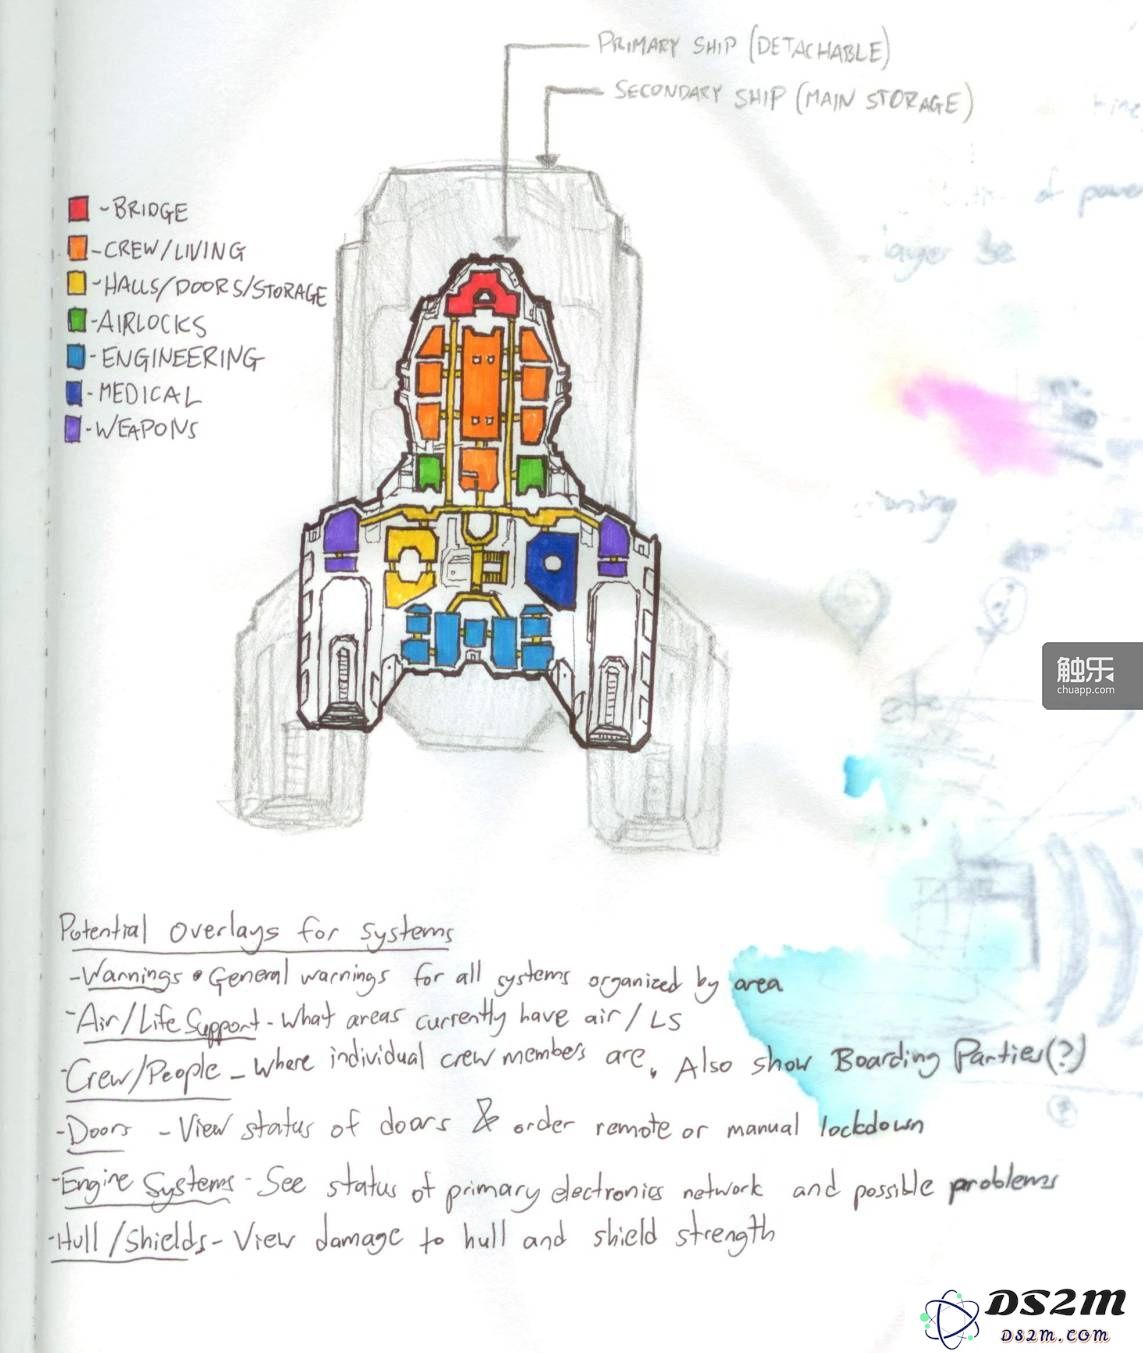 PRIMARY SHIP (DETACHABLE)
SECONDARY SHIP (MAIN STORAGE)
-BRIDGE
-CREW/LIVING
-HALLS/DOORS/STORAGE
-AIRLOCKS
-ENGINEERING
-MEDICAL
-WEAPONS
of power
layer be
etc
触乐
chuapp.com
Potential Overlays for Systems
-Warnings • General warnings for all systems organized by area
-Air/Life Support - What areas currently have air/LS
-Crew/People - Where individual crew members are. Also show Boarding Parties(?)
-Doors - View status of doors & order remote or manual lockdown
-Engine Systems - See status of primary electronics network and possible problems
-Hull/Shields - View damage to hull and shield strength
DS2M
DS2M.COM